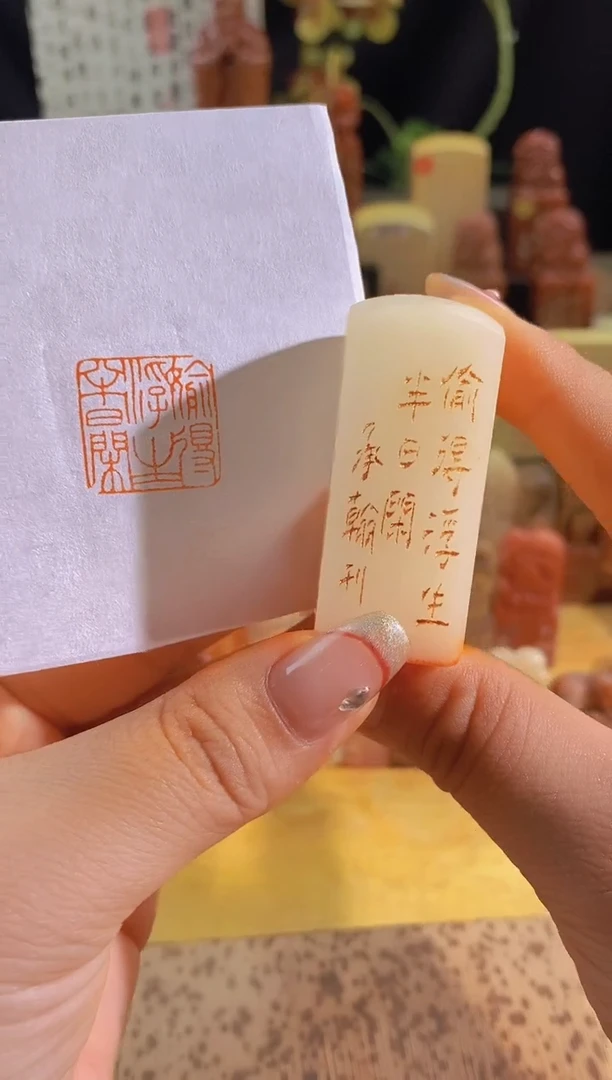 媮得
浮生
半日閑
偷得浮生
半日閑
承翰刊